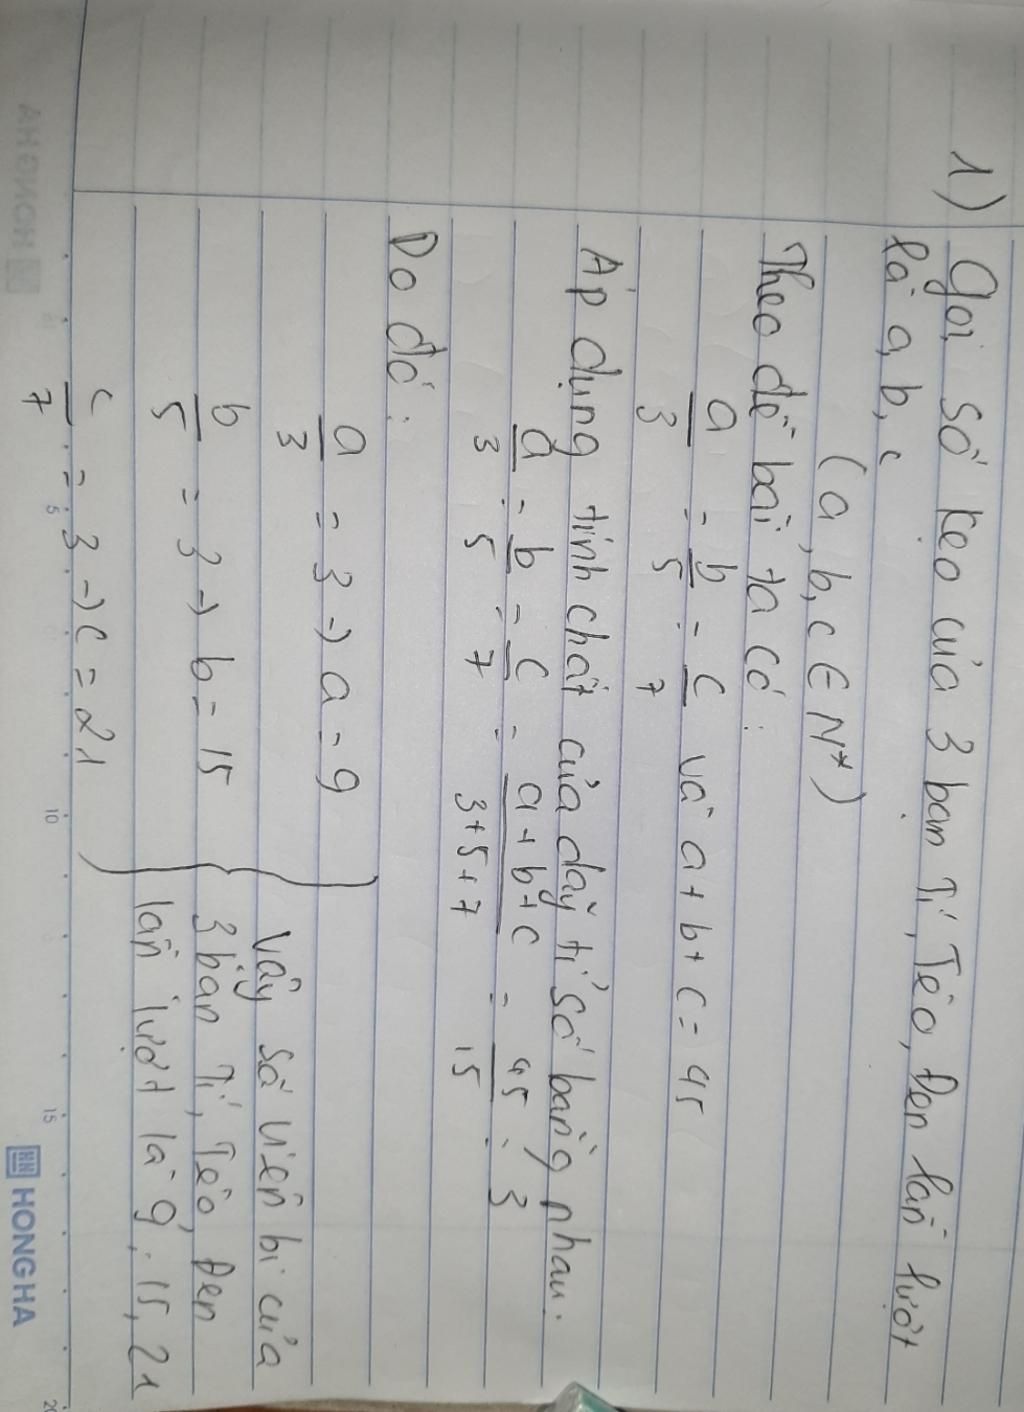 1) Gọi số kẹo của 3 bạn Tí, Tèo, Đen lần lượt
là a, b, c
(a, b, c ∈ N*)
Theo đề bài ta có:
a/3 = b/5 = c/7 và a + b + c = 45
Áp dụng tính chất của dãy tỉ số bằng nhau.
a/3 = b/5 = c/7 = a+b+c/3+5+7 = 45/15 = 3
Do đó:
a/3 = 3 → a = 9
b/5 = 3 → b = 15
c/7 = 3 → c = 21
Vậy số viên bi của
3 bạn Tí, Tèo, Đen
lần lượt là 9, 15, 21
5 10 15 20
HONG HA